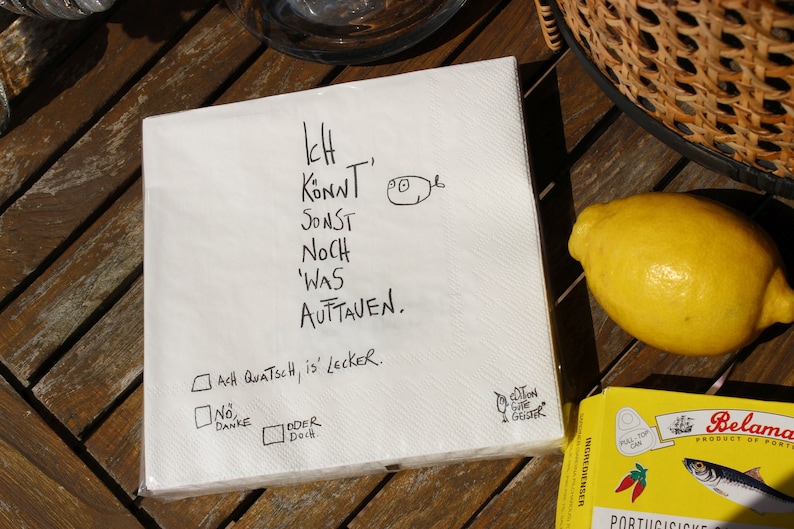 ICH
KÖNNT'
SONST
NOCH
'WAS
AUFTAUEN.
ACH QUATSCH, IS' LECKER.
NÖ,
DANKE
ODER
DOCH.
EDITION
GUTE
GEISTER
PULL-TOP
CAN
Belama
PRODUCT OF PORT
INGREDIENSER
PORTUGISISKE